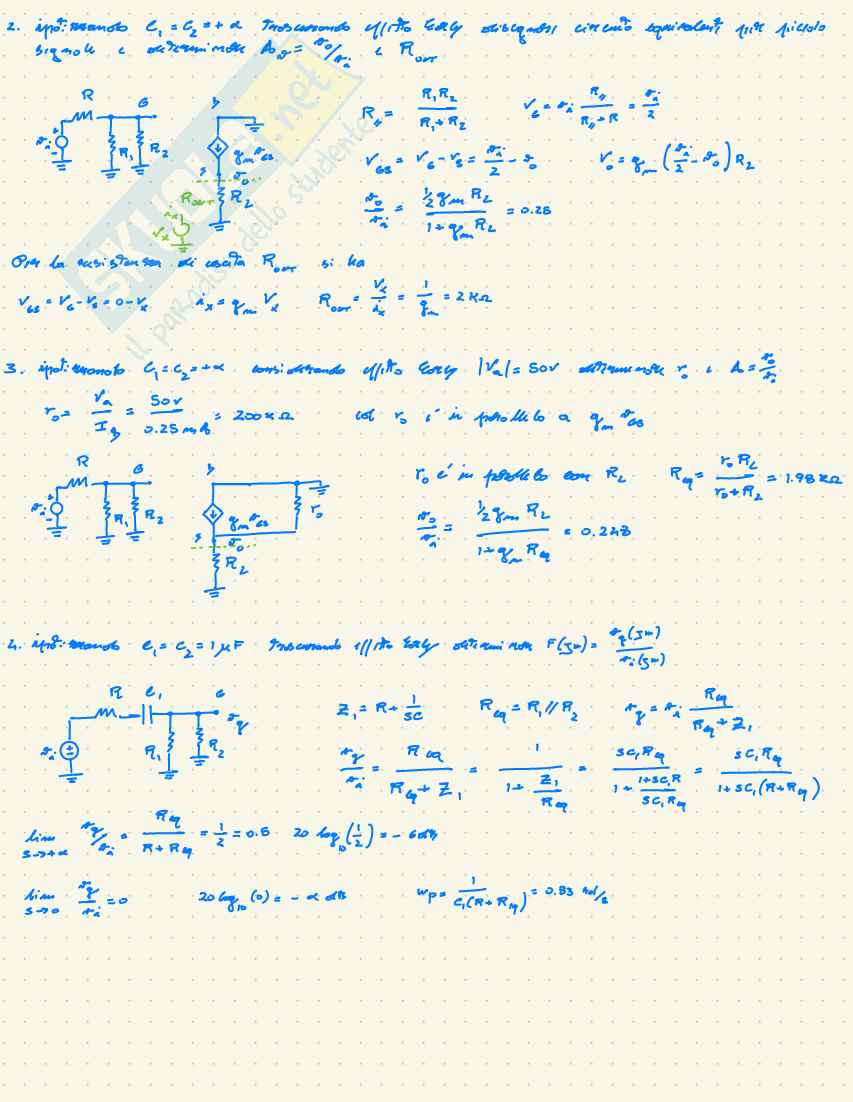 2. ipotizzando C₁ = C₂ = +∞ trascurando effetto Early disegnare circuito equivalente per piccolo
segnale e determinare A_v = v_o/v_i e R_out
R G D
R_// = R₁R₂ / (R₁+R₂) v_G = v_i R_// / (R_//+R) = v_i/2
v_i R₁ R₂ g_m v_GS
S v_o
v_GS = v_G - v_S = v_i/2 - v_o v_o = g_m (v_i/2 - v_o) R_L
R_out R_L
i_x
v_x
v_o/v_i = ½ g_m R_L / (1 + g_m R_L) = 0.25
Per la resistenza di uscita R_out si ha
v_GS = v_G - v_S = 0 - v_x i_x = g_m v_x R_out = v_x/i_x = 1/g_m = 2 kΩ
3. ipotizzando C₁ = C₂ = +∞ considerando effetto Early |V_a| = 50V determinare r_o e A = v_o/v_i
r_o = V_a/I_D = 50V/0.25 mA = 200 kΩ col r_o è in parallelo a g_m v_GS
R G D
r_o è in parallelo con R_L R_eq = r_o R_L / (r_o + R_L) = 1.98 kΩ
v_i R₁ R₂ g_m v_GS r_o
S v_o
R_L
v_o/v_i = ½ g_m R_L / (1 + g_m R_eq) = 0.248
4. ipotizzando C₁ = C₂ = 1 μF trascurando effetto Early determinare F(jw) = v_g(jw)/v_i(jw)
R C₁ G
v_g
v_i R₁ R₂
Z₁ = R + 1/SC R_eq = R₁ // R₂ v_g = v_i R_eq / (R_eq + Z₁)
v_g/v_i = R_eq / (R_eq + Z₁) = 1 / (1 + Z₁/R_eq) = SC₁R_eq / (1 + (1+SC₁R)/(SC₁R_eq)) = SC₁R_eq / (1 + SC₁(R+R_eq))
lim S→+∞ v_g/v_i = R_eq / (R + R_eq) = 1/2 = 0.5 20 log₁₀(1/2) = - 6dB
lim S→0 v_g/v_i = 0 20 log₁₀(0) = - ∞ dB w_p = 1 / (C₁(R+R_eq)) = 0.83 rad/s
SKUOLA.net
il paradiso dello studente